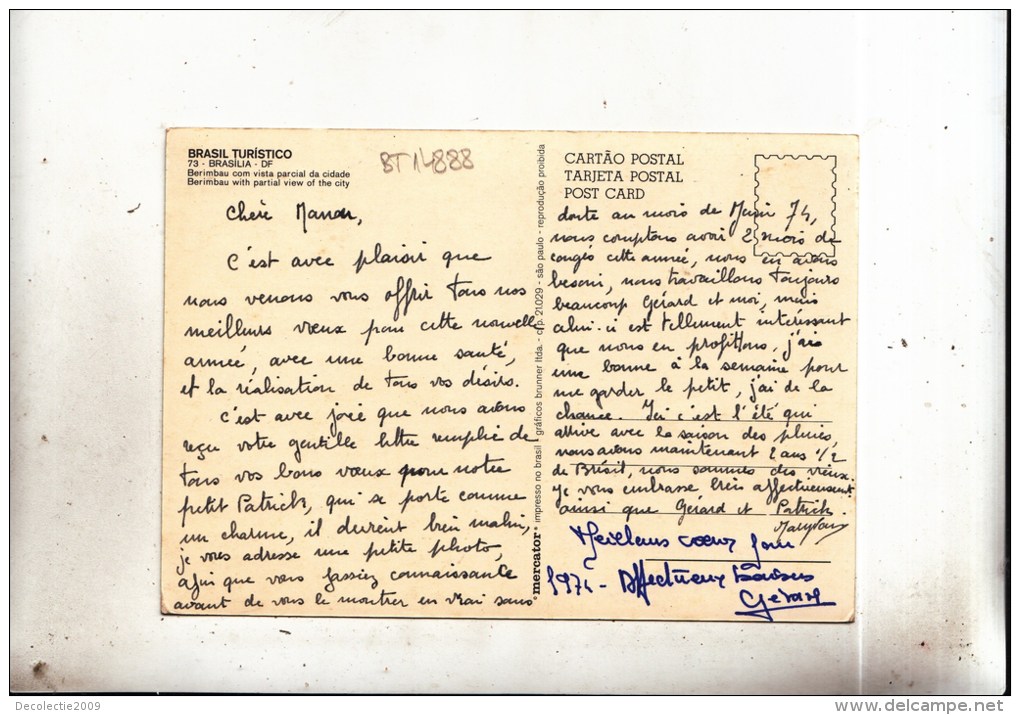 BRASIL TURÍSTICO
73 - BRASÍLIA - DF
Berimbau com vista parcial da cidade
Berimbau with partial view of the city
BT14888
Chère
C'est avec plaisir que
nous venons vous offrir tous nos
meilleurs vœux pour cette nouvelle
année, avec une bonne santé,
et la réalisation de tous vos désirs.
C'est avec joie que nous avons
reçu votre gentille lettre remplie de
tous vos bons vœux pour notre
petit Patrick, qui se porte comme
un charme, il devient bien malin,
je vous adresse une petite photo,
afin que vous fassiez connaissance
avant de vous le montrer en vrai sans
mercator® impresso no brasil - gráficos brunner ltda. - c. p. 21.029 - são paulo - reprodução proibida
CARTÃO POSTAL
TARJETA POSTAL
POST CARD
doute au mois de Juin 74,
nous comptons avoir 2 mois de
congés cette année, nous en avons
besoin, nous travaillons toujours
beaucoup Gérard et moi, mais
celui-ci est tellement intéressant
que nous en profitons, j'ai
une bonne à la semaine pour
me garder le petit, j'ai de la
chance. Ici c'est l'été qui
arrive avec la saison des pluies,
nous avons maintenant 2 ans 1/2
de Brésil, nous sommes des vieux.
Je vous embrasse bien affectueusement
ainsi que Gérard et Patrick
Meilleurs vœux pour
1974 - Affectueux baisers
Gérard
Decolectie2009
www.delcampe.net